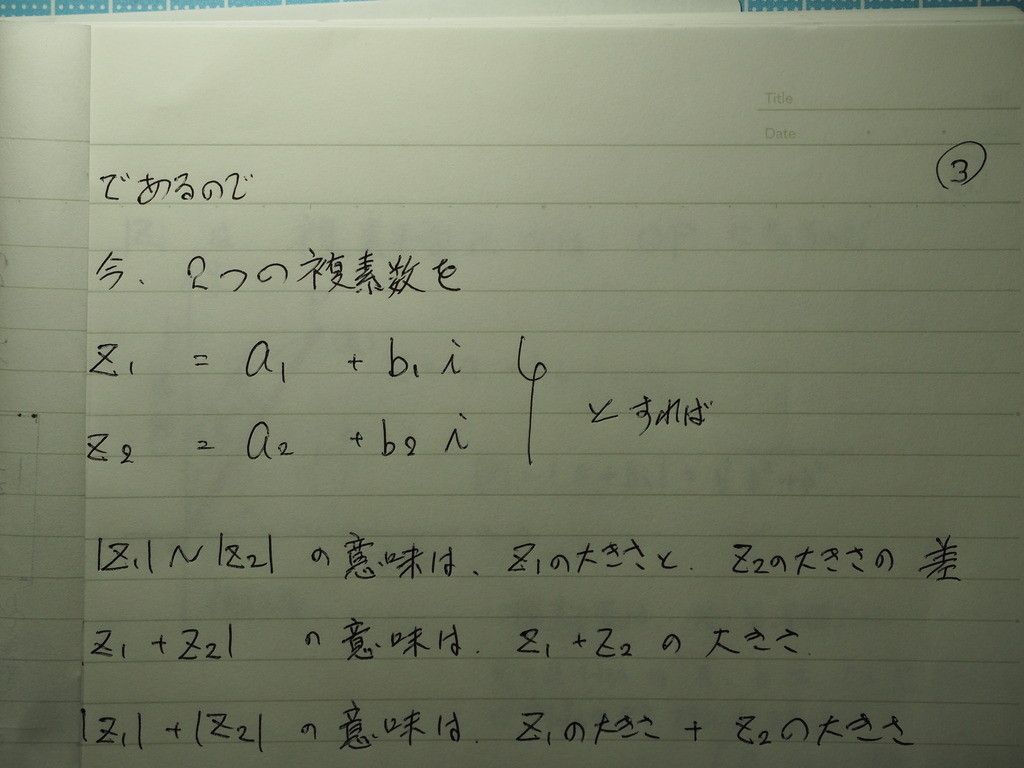 Title
Date
③
であるので
今、2つの複素数を
z₁ = a₁ + b₁ i
とすれば
z₂ = a₂ + b₂ i
|z₁| ~ |z₂| の意味は、z₁の大きさと、z₂の大きさの差
z₁ + z₂| の意味は、z₁ + z₂ の大きさ
|z₁| + |z₂| の意味は、z₁の大きさ + z₂の大きさ